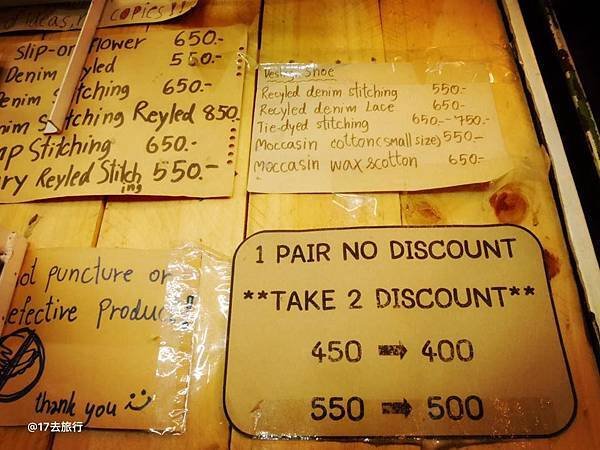 of ideas, copies!!
Slip-on Flower 650.-
Denim 550.-
Denim Stitching 650.-
Stitching Reyled 850
Stitching 650.-
Reyled Stitching 550.-
Shoe
Recyled denim stitching 550.-
Recyled denim Lace 650.-
Tie-dyed stitching 650.--750.-
Moccasin cotton(small size) 550.-
Moccasin wax &cotton 650.-
not puncture or
efective Produc
thank you
1 PAIR NO DISCOUNT
**TAKE 2 DISCOUNT**
450 ➡ 400
550 ➡ 500
@17去旅行